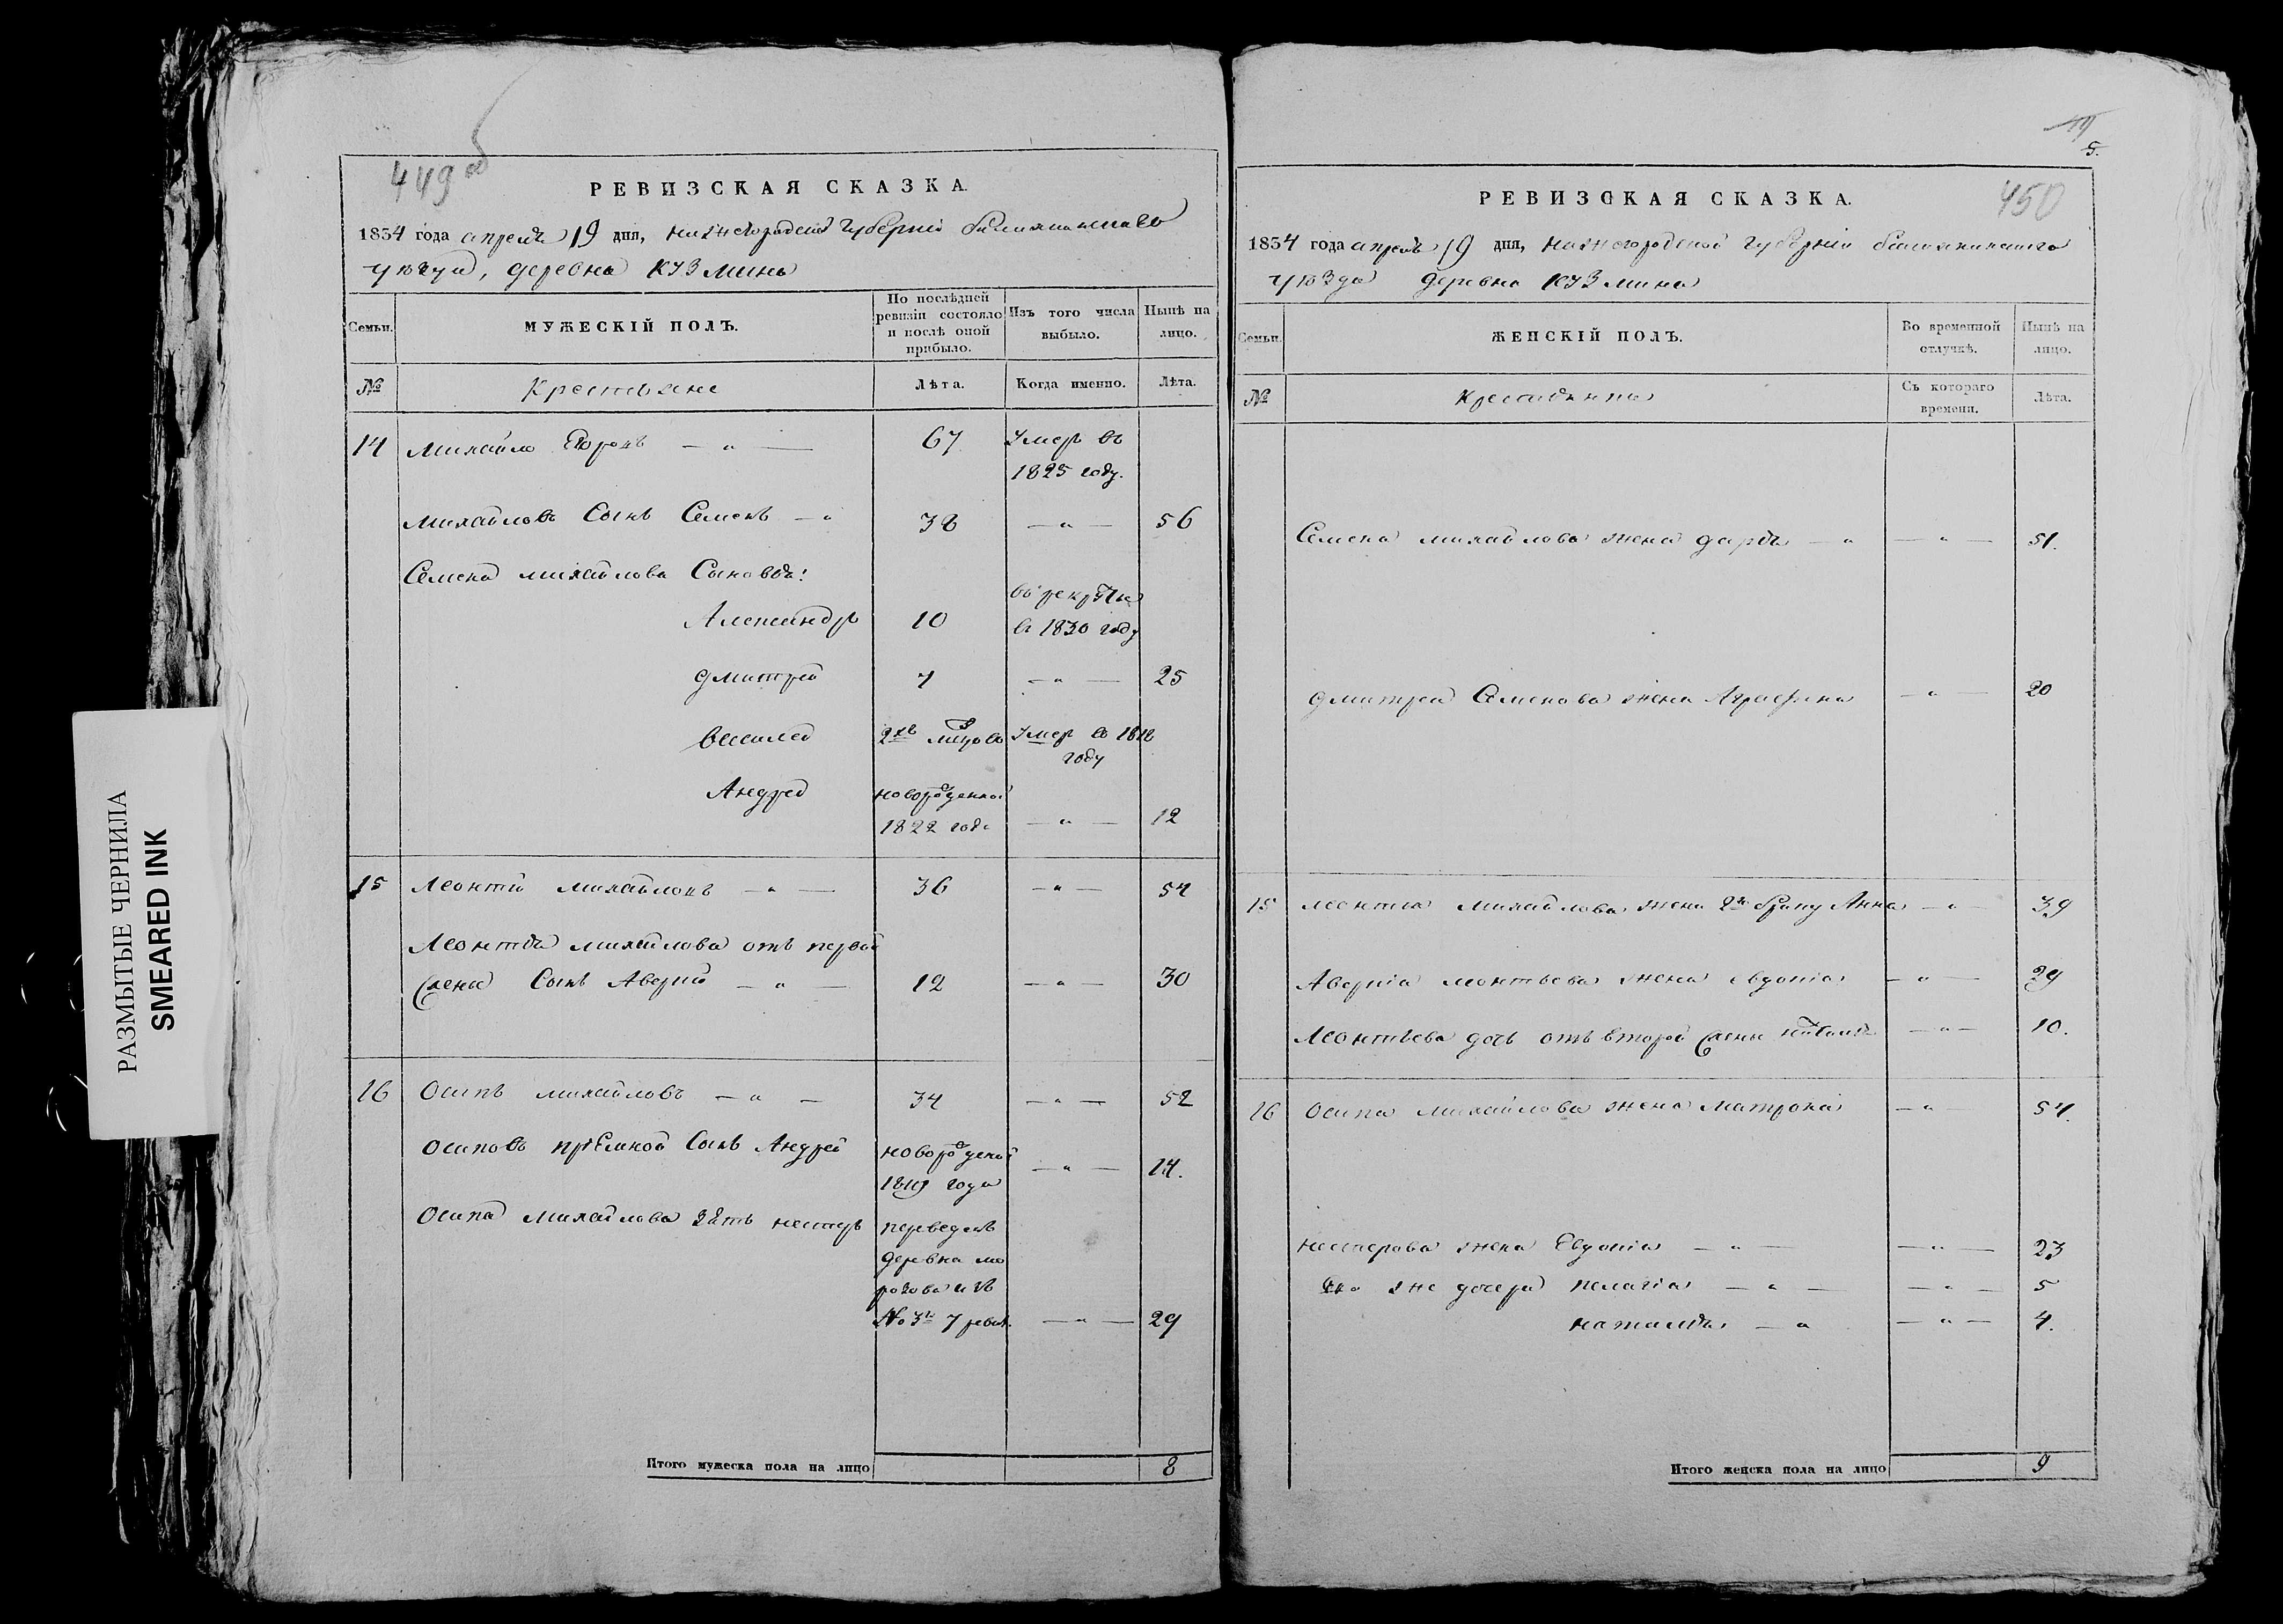 РАЗМЫТЫЕ ЧЕРНИЛА
SMEARED INK
449 об
РЕВИЗСКАЯ СКАЗКА.
1834 года апреля 19 дня, нижегородской губерніи
уѣзда, деревна Кузмина
Семьи.
МУЖЕСКІЙ ПОЛЪ.
По послѣдней ревизіи состояло и послѣ оной прибыло.
Изъ того числа выбыло.
Нынѣ на лицо.
№
Крестьяне
Лѣта.
Когда именно.
Лѣта.
14 Михайло — „ — 67 Умеръ въ
1825 году.
Михайловъ Сынъ Семенъ — „ 38 — „ — 56
Семена михайлова Сыновья:
Александръ 10 въ рекруты
въ 1830 году
дмитрей 7 — „ — 25
василей 2хъ Умеръ въ 1818
году
Андрей новорожденной
1822 года — „ — 12
15 Леонтій михайловъ — „ — 36 — „ — 54
Леонтья михайлова отъ первой
жены Сынъ Аверий — „ — 12 — „ — 30
16 Осипъ михайловъ — „ — 34 — „ — 52
Осиповъ пріемной Сынъ Андрей новорожденой
1819 года — „ — 14.
Осипа михайлова зять нестеръ переведенъ
деревна
№ 3й 7 ревиз. — „ — 29
Итого мужеска пола на лицо 8
5.
450
РЕВИЗСКАЯ СКАЗКА.
1834 года апреля 19 дня, нижегородской губерніи
уѣзда деревна Кузмина
Семьи.
ЖЕНСКІЙ ПОЛЪ.
Во временной отлучкѣ.
Нынѣ на лицо.
№
Крестьянки
Съ котораго времени.
Лѣта.
Семена михайлова жена дарья — „ — „ — 51.
дмитрея Семенова жена Аграфена — „ — 20
15 леонтия михайлова жена 2го браку Анна — „ — 39
Аверия леонтьева жена евдокія — „ — 29
Леонтьева дочь отъ второй жены — „ — 10.
16 Осипа михайлова жена матрона — „ — 54.
нестерова жена Евдокія — „ — — „ — 23
его же дочери пелагія — „ — — „ — 5
наталья — „ — „ — 4.
Итого женска пола на лицо 9